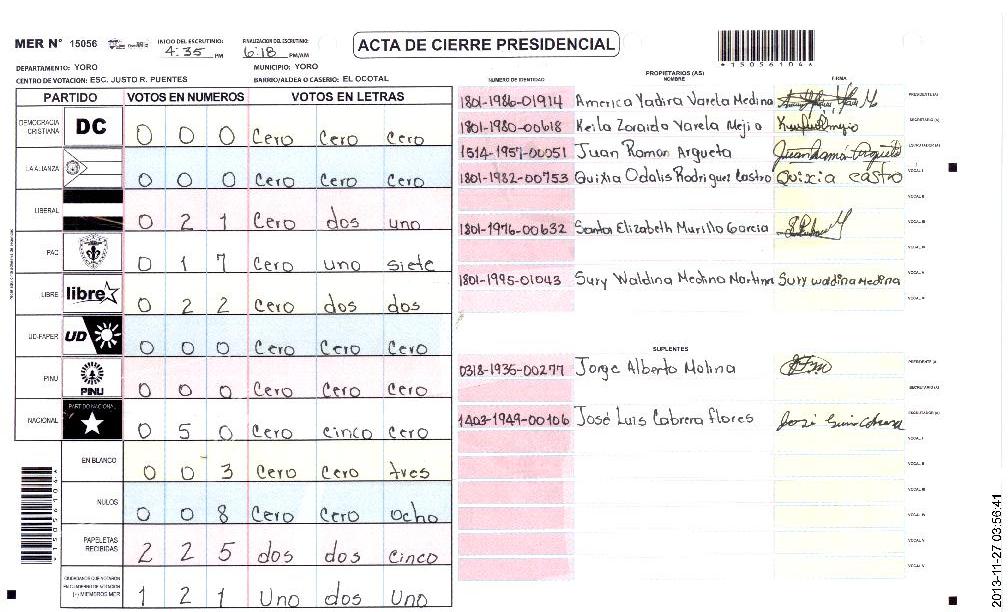 MER N° 15056 INICIO DEL ESCRUTINIO: 4:35 PM FINALIZACION DEL ESCRUTINIO: 6:18 PM/AM ACTA DE CIERRE PRESIDENCIAL *15056104*
DEPARTAMENTO: YORO MUNICIPIO: YORO
CENTRO DE VOTACION: ESC. JUSTO R. PUENTES BARRIO/ALDEA O CASERIO: EL OCOTAL
PARTIDO VOTOS EN NUMEROS VOTOS EN LETRAS
DEMOCRACIA CRISTIANA DC 0 0 0 Cero Cero Cero
LA ALIANZA 0 0 0 Cero Cero Cero
LIBERAL 0 2 1 Cero dos uno
PAC 0 1 7 Cero uno siete
LIBRE libre 0 2 2 Cero dos dos
UD-FAPER UD 0 0 0 Cero Cero Cero
PINU PINU 0 0 0 Cero Cero Cero
NACIONAL PARTIDO NACIONAL 0 5 0 Cero cinco Cero
EN BLANCO 0 0 3 Cero Cero tres
NULOS 0 0 8 Cero Cero ocho
PAPELETAS RECIBIDAS 2 2 5 dos dos cinco
CIUDADANOS QUE VOTARON EN CUADERNO DE VOTACION (+) MIEMBROS MER 1 2 1 Uno dos Uno
*15056104*
PROPIETARIOS (AS)
NUMERO DE IDENTIDAD NOMBRE FIRMA
1801-1986-01914 America Yadira Varela Medina PRESIDENTE (A)
1801-1980-00618 Keila Zoraida Varela Mejia SECRETARIO (A)
1514-1957-00051 Juan Ramon Argueta Juan Ramón Argueta ESCRUTADOR (A)
1801-1982-00753 Quixia Odalis Rodriguez Castro Quixia Castro VOCAL I
VOCAL II
1801-1976-00632 Santa Elizabeth Murillo Garcia VOCAL III
VOCAL IV
1801-1995-01043 Sury Waldina Medina Martinez Sury waldina Medina VOCAL V
SUPLENTES
0318-1935-00277 Jorge Alberto Molina PRESIDENTE (A)
SECRETARIO (A)
1403-1949-00106 José Luis Cabrera flores ESCRUTADOR (A)
VOCAL I
VOCAL II
VOCAL III
VOCAL IV
VOCAL V
2013-11-27 03:56:41